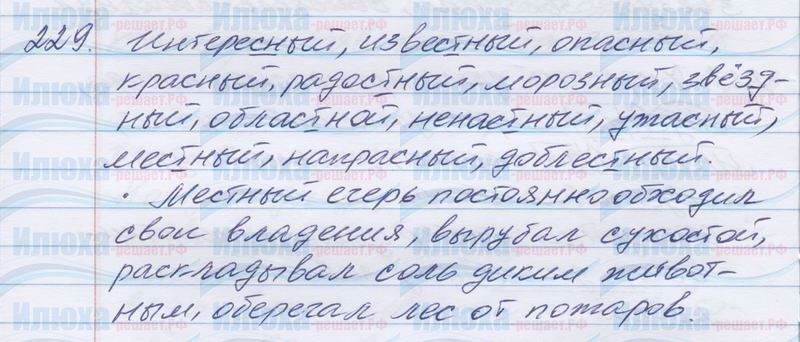 229. Интересный, известный, опасный,
красный, радостный, морозный, звёзд-
ный, областной, ненастный, ужасный,
местный, напрасный, доблестный.
· Местный егерь постоянно обходил
свои владения, вырубал сухостой,
раскладывал соль диким живот-
ным, оберегал лес от пожаров.